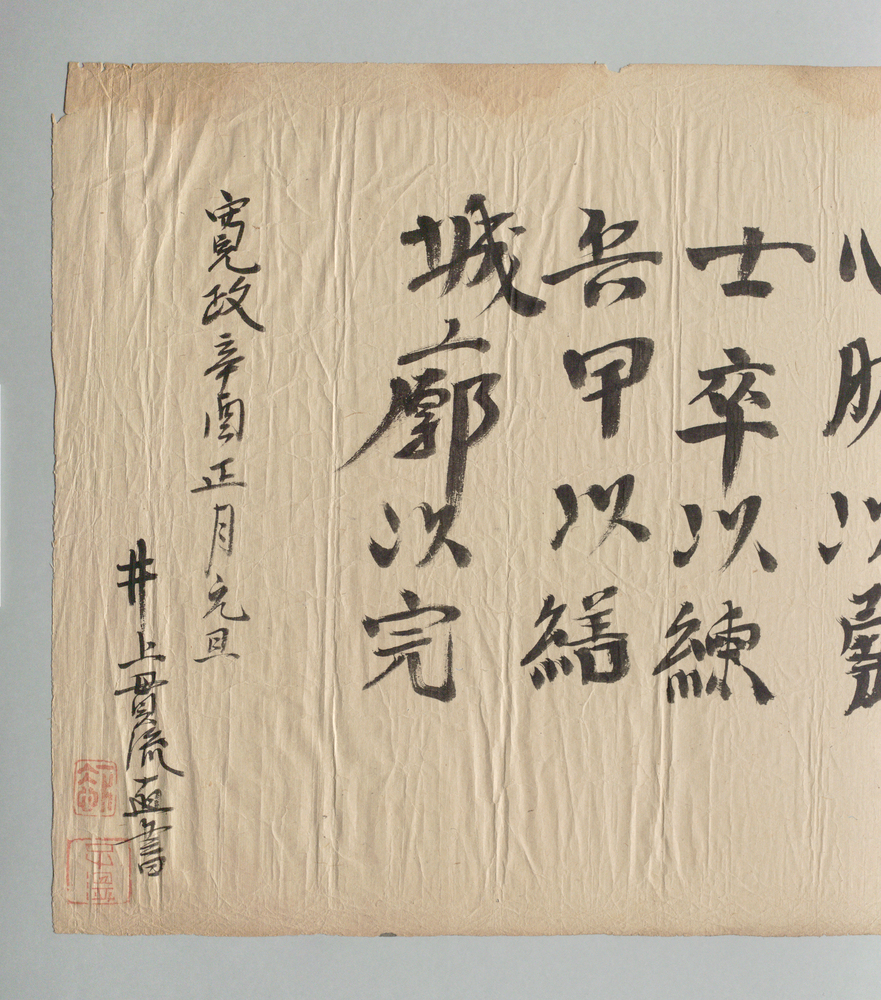 心肪以
士卒以練
兵甲以繕
城廓以完
寛政辛酉正月元旦
井上貫流直書